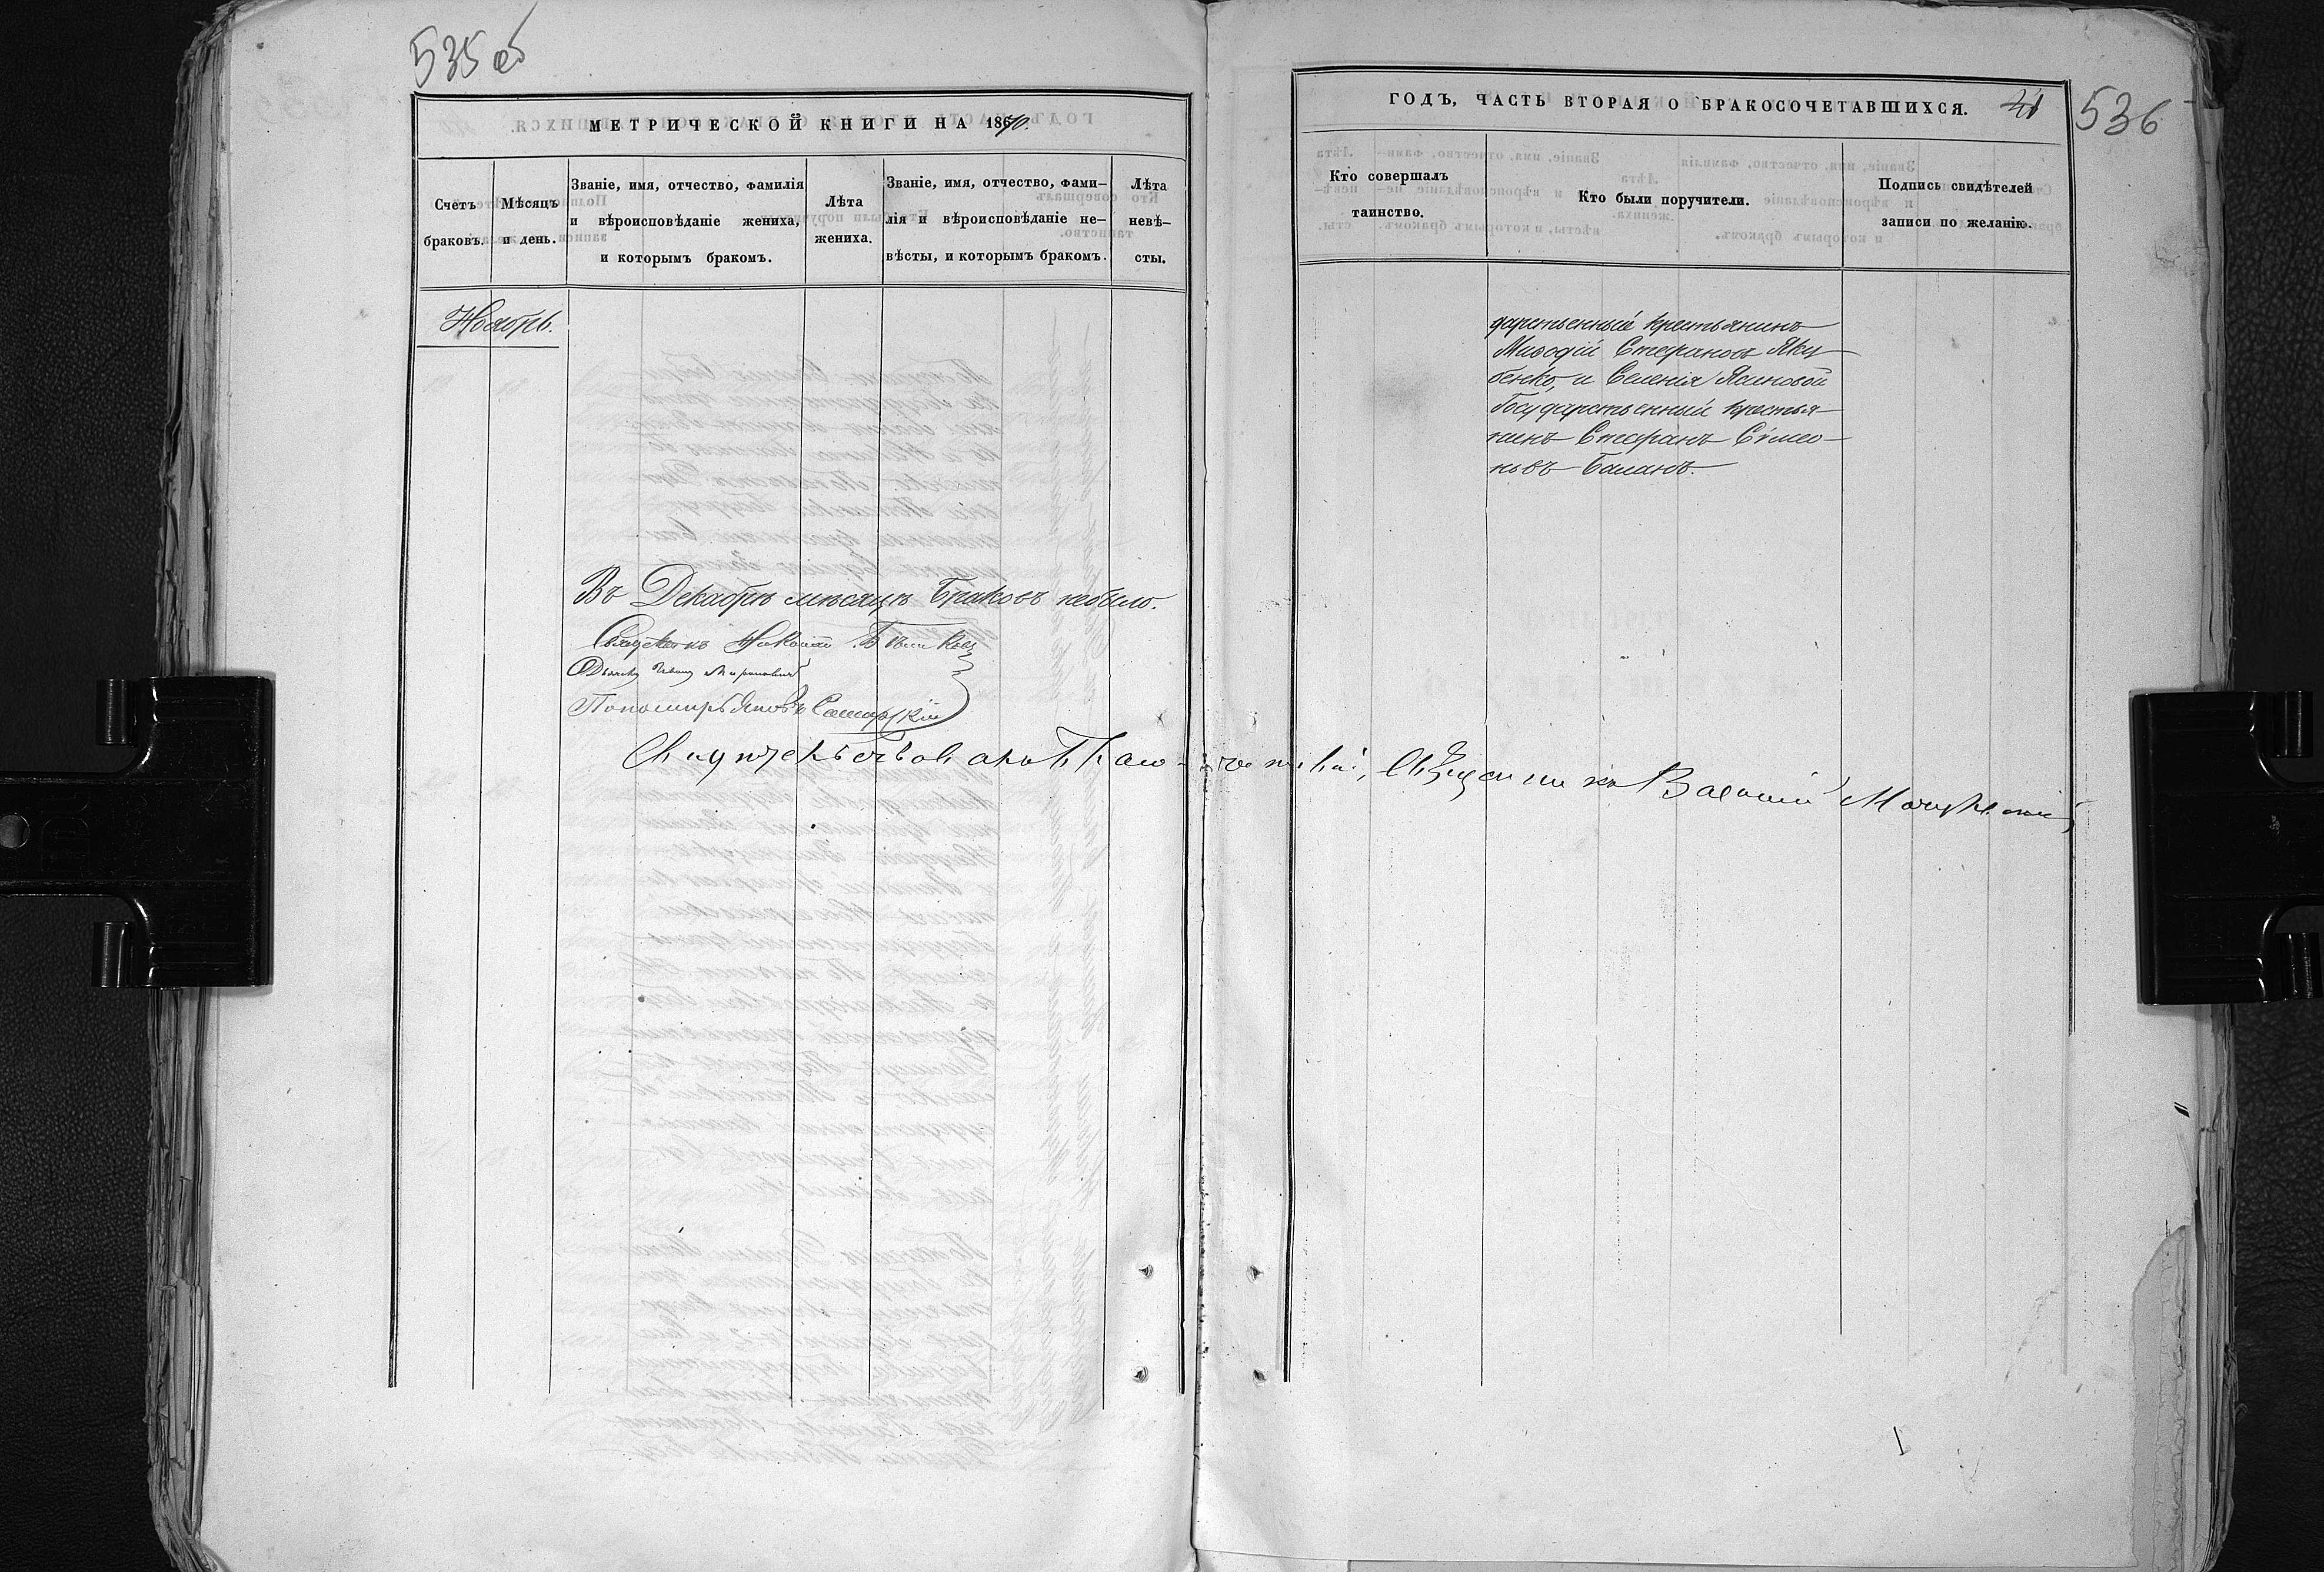 535 об
МЕТРИЧЕСКОЙ КНИГИ НА 1870.
Счетъ браковъ.
Мѣсяцъ и день.
Званіе, имя, отчество, фамилія и вѣроисповѣданіе жениха, и которымъ бракомъ.
Лѣта жениха.
Званіе, имя, отчество, фами-лія и вѣроисповѣданіе не-вѣсты, и которымъ бракомъ.
Лѣта невѣ-сты.
Ноябрь.
Въ Декабрѣ мѣсяцѣ браковъ небыло.
Священникъ
Дьячекъ Иванъ
Пономарь Яковъ Самарскій
ГОДЪ, ЧАСТЬ ВТОРАЯ О БРАКОСОЧЕТАВШИХСЯ. 41
536
Кто совершалъ таинство.
Кто были поручители.
Подпись свидѣтелей записи по желанію.
дарственный крестьянинъ
Миѳодій Стефановъ Яку-
бенко, и Селенія Ясиновой
Государственный крестья-
нинъ Стефанъ Симео-
новъ Баланъ.
Священникъ Василій